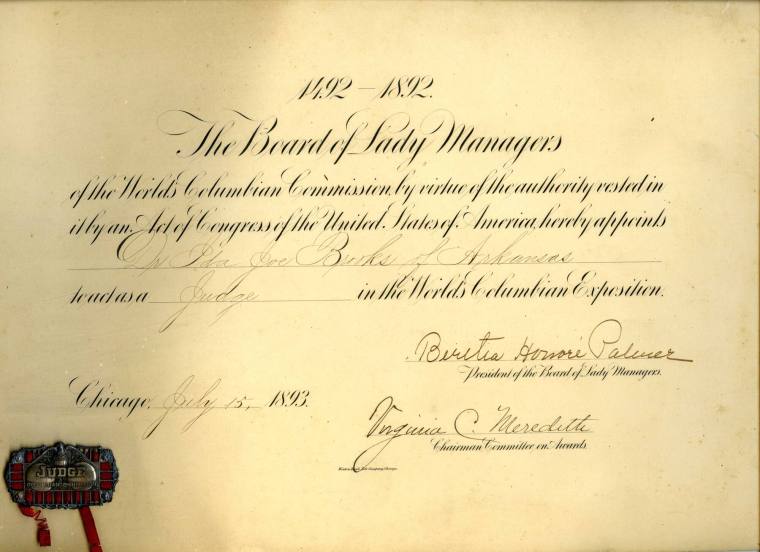 1492 – 1892.
The Board of Lady Managers
of the World's Columbian Commission, by virtue of the authority vested in
it by an Act of Congress of the United States of America, hereby appoints
Dr Ida Joe Brooks of Arkansas
to act as a Judge in the World's Columbian Exposition.
Bertha Honoré Palmer
President of the Board of Lady Managers.
Chicago, July 15, 1893.
Virginia C. Meredith
Chairman Committee on Awards
JUDGE